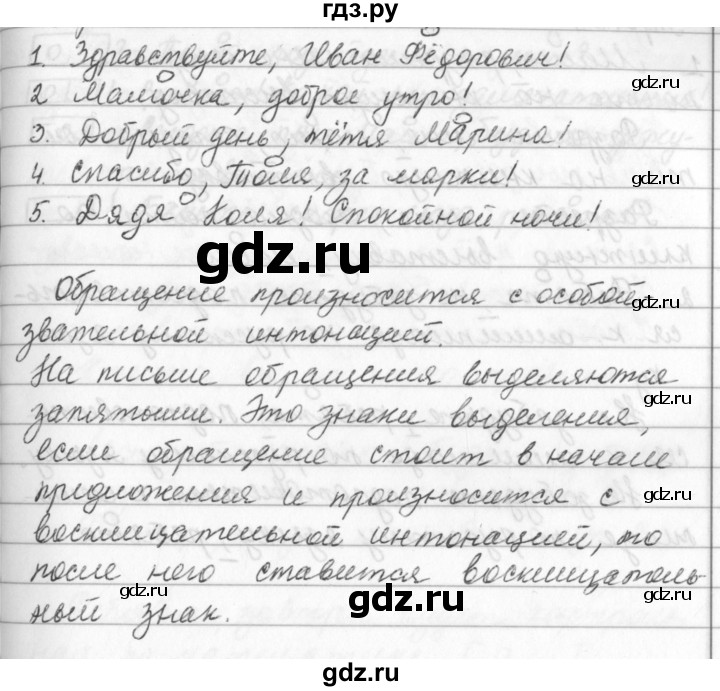 гдз.ру
1. Здравствуйте, Иван Фёдорович!
gdz.ru
2 Мамочка, доброе утро!
3. Добрый день, тётя Марина!
gdz.ru
4. Спасибо, Толя, за марки!
5. Дядя Коля! Спокойной ночи!
gdz.ru
Обращение произносится с особой
gdz.ru
звательной интонацией.
На письме обращения выделяются
gdz.ru
запятыми. Это знаки выделения,
если обращение стоит в начале
предложения и произносится с
gdz.ru
восклицательной интонацией, то
после него ставится восклицатель-
gdz.ru
gdz.ru
gdz.ru
ный знак.
gdz.ru